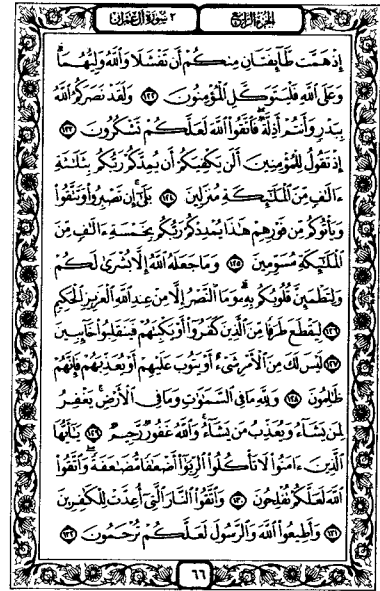 الجزء الرابع ٣ سورة آل عمران
إِذْ هَمَّت طَّآئِفَتَانِ مِنكُمْ أَن تَفْشَلَا وَٱللَّهُ وَلِيُّهُمَا ۗ
وَعَلَى ٱللَّهِ فَلْيَتَوَكَّلِ ٱلْمُؤْمِنُونَ ١٢٢ وَلَقَدْ نَصَرَكُمُ ٱللَّهُ
بِبَدْرٍ وَأَنتُمْ أَذِلَّةٌ ۖ فَٱتَّقُوا۟ ٱللَّهَ لَعَلَّكُمْ تَشْكُرُونَ ١٢٣
إِذْ تَقُولُ لِلْمُؤْمِنِينَ أَلَن يَكْفِيَكُمْ أَن يُمِدَّكُمْ رَبُّكُم بِثَلَـٰثَةِ
ءَالَـٰفٍ مِّنَ ٱلْمَلَـٰٓئِكَةِ مُنزَلِينَ ١٢٤ بَلَىٰٓ ۚ إِن تَصْبِرُوا۟ وَتَتَّقُوا۟
وَيَأْتُوكُم مِّن فَوْرِهِمْ هَـٰذَا يُمْدِدْكُمْ رَبُّكُم بِخَمْسَةِ ءَالَـٰفٍ مِّنَ
ٱلْمَلَـٰٓئِكَةِ مُسَوِّمِينَ ١٢٥ وَمَا جَعَلَهُ ٱللَّهُ إِلَّا بُشْرَىٰ لَكُمْ
وَلِتَطْمَئِنَّ قُلُوبُكُم بِهِۦ ۗ وَمَا ٱلنَّصْرُ إِلَّا مِنْ عِندِ ٱللَّهِ ٱلْعَزِيزِ ٱلْحَكِيمِ
١٢٦ لِيَقْطَعَ طَرَفًا مِّنَ ٱلَّذِينَ كَفَرُوٓا۟ أَوْ يَكْبِتَهُمْ فَيَنقَلِبُوا۟ خَآئِبِينَ
١٢٧ لَيْسَ لَكَ مِنَ ٱلْأَمْرِ شَىْءٌ أَوْ يَتُوبَ عَلَيْهِمْ أَوْ يُعَذِّبَهُمْ فَإِنَّهُمْ
ظَـٰلِمُونَ ١٢٨ وَلِلَّهِ مَا فِى ٱلسَّمَـٰوَٰتِ وَمَا فِى ٱلْأَرْضِ ۚ يَغْفِرُ
لِمَن يَشَآءُ وَيُعَذِّبُ مَن يَشَآءُ ۚ وَٱللَّهُ غَفُورٌ رَّحِيمٌ ١٢٩ يَـٰٓأَيُّهَا
ٱلَّذِينَ ءَامَنُوا۟ لَا تَأْكُلُوا۟ ٱلرِّبَوٰٓا۟ أَضْعَـٰفًا مُّضَـٰعَفَةً ۖ وَٱتَّقُوا۟
ٱللَّهَ لَعَلَّكُمْ تُفْلِحُونَ ١٣٠ وَٱتَّقُوا۟ ٱلنَّارَ ٱلَّتِىٓ أُعِدَّتْ لِلْكَـٰفِرِينَ
١٣١ وَأَطِيعُوا۟ ٱللَّهَ وَٱلرَّسُولَ لَعَلَّكُمْ تُرْحَمُونَ ١٣٢
٦٦